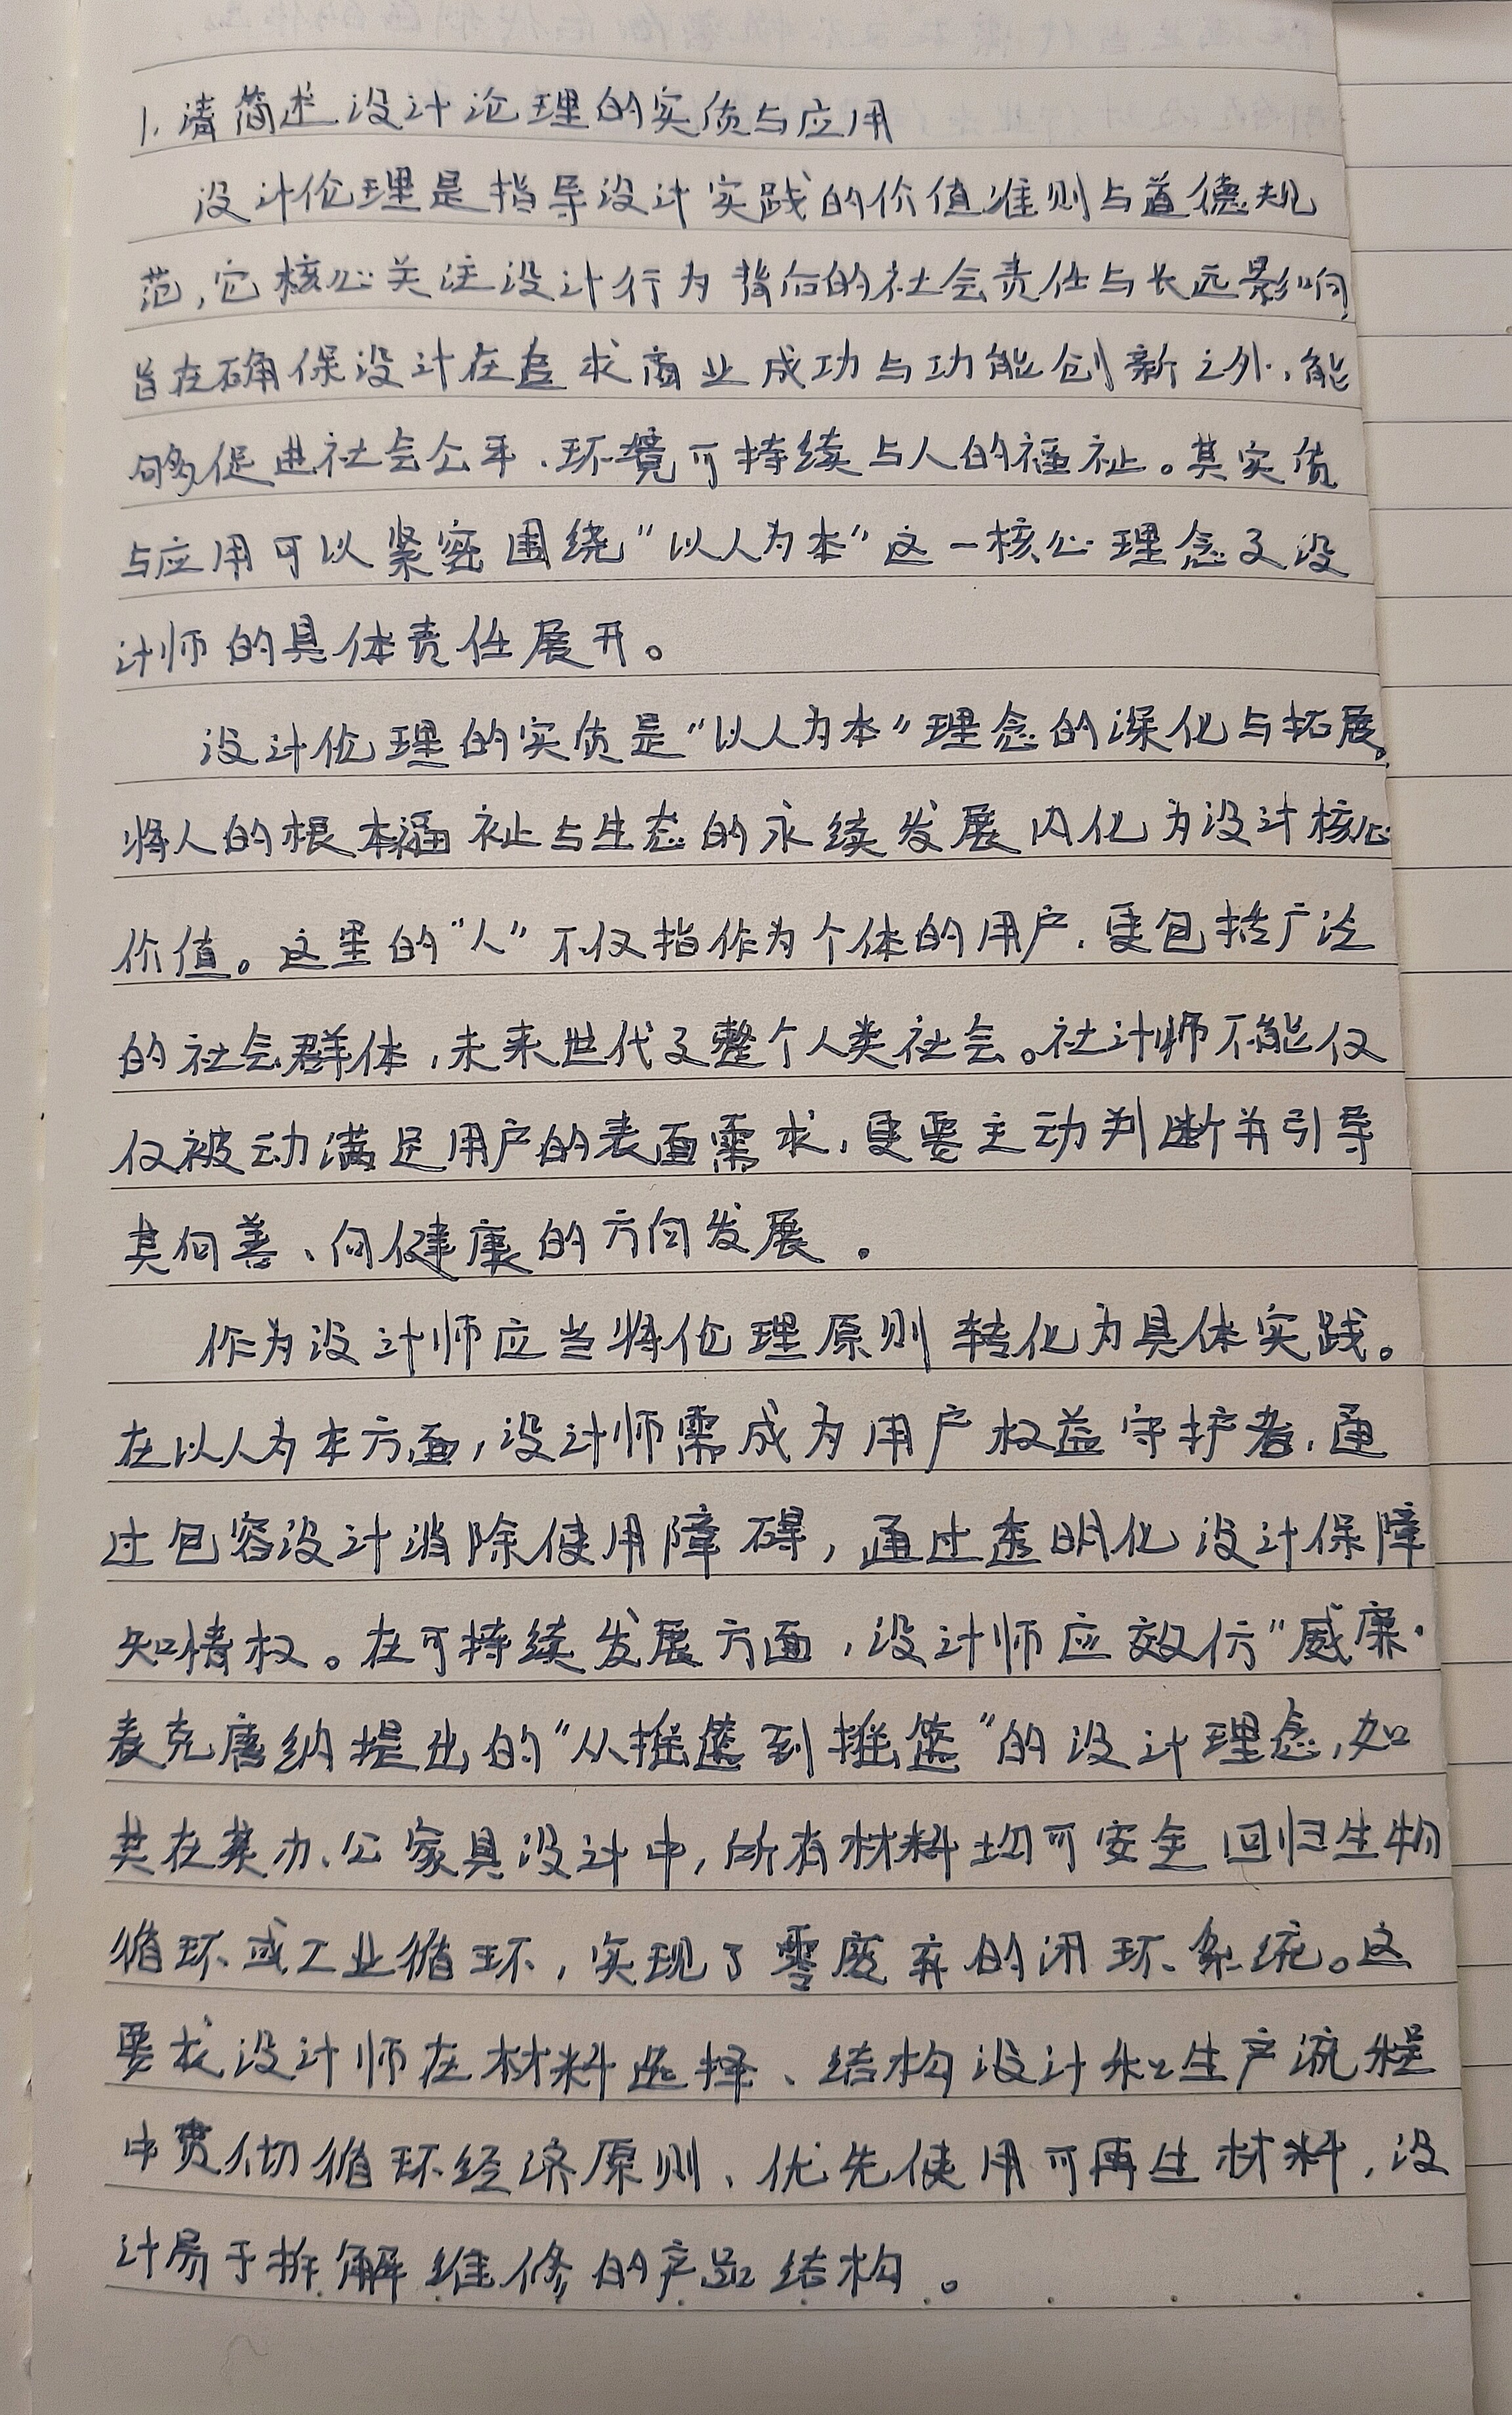 1. 请简述设计论理的实质与应用
设计伦理是指导设计实践的价值准则与道德规
范,它核心关注设计行为背后的社会责任与长远影响,
旨在确保设计在追求商业成功与功能创新之外,能
够促进社会公平、环境可持续与人的福祉。其实质
与应用可以紧密围绕"以人为本"这一核心理念及设
计师的具体责任展开。
设计伦理的实质是"以人为本"理念的深化与拓展,
将人的根本福祉与生态的永续发展内化为设计核心
价值。这里的"人"不仅指作为个体的用户,更包括广泛
的社会群体,未来世代及整个人类社会。社计师不能仅
仅被动满足用户的表面需求,更要主动判断并引导
其向善、向健康的方向发展。
作为设计师应当将伦理原则转化为具体实践。
在以人为本方面,设计师需成为用户权益守护者,通
过包容设计消除使用障碍,通过透明化设计保障
知情权。在可持续发展方面,设计师应效仿"威廉·
麦克唐纳提出的"从摇篮到摇篮"的设计理念,如
其在某办公家具设计中,所有材料均可安全回归生物
循环或工业循环,实现了零废弃的闭环系统。这
要求设计师在材料选择、结构设计和生产流程
中贯彻循环经济原则、优先使用可再生材料,设
计易于拆解维修的产品结构。